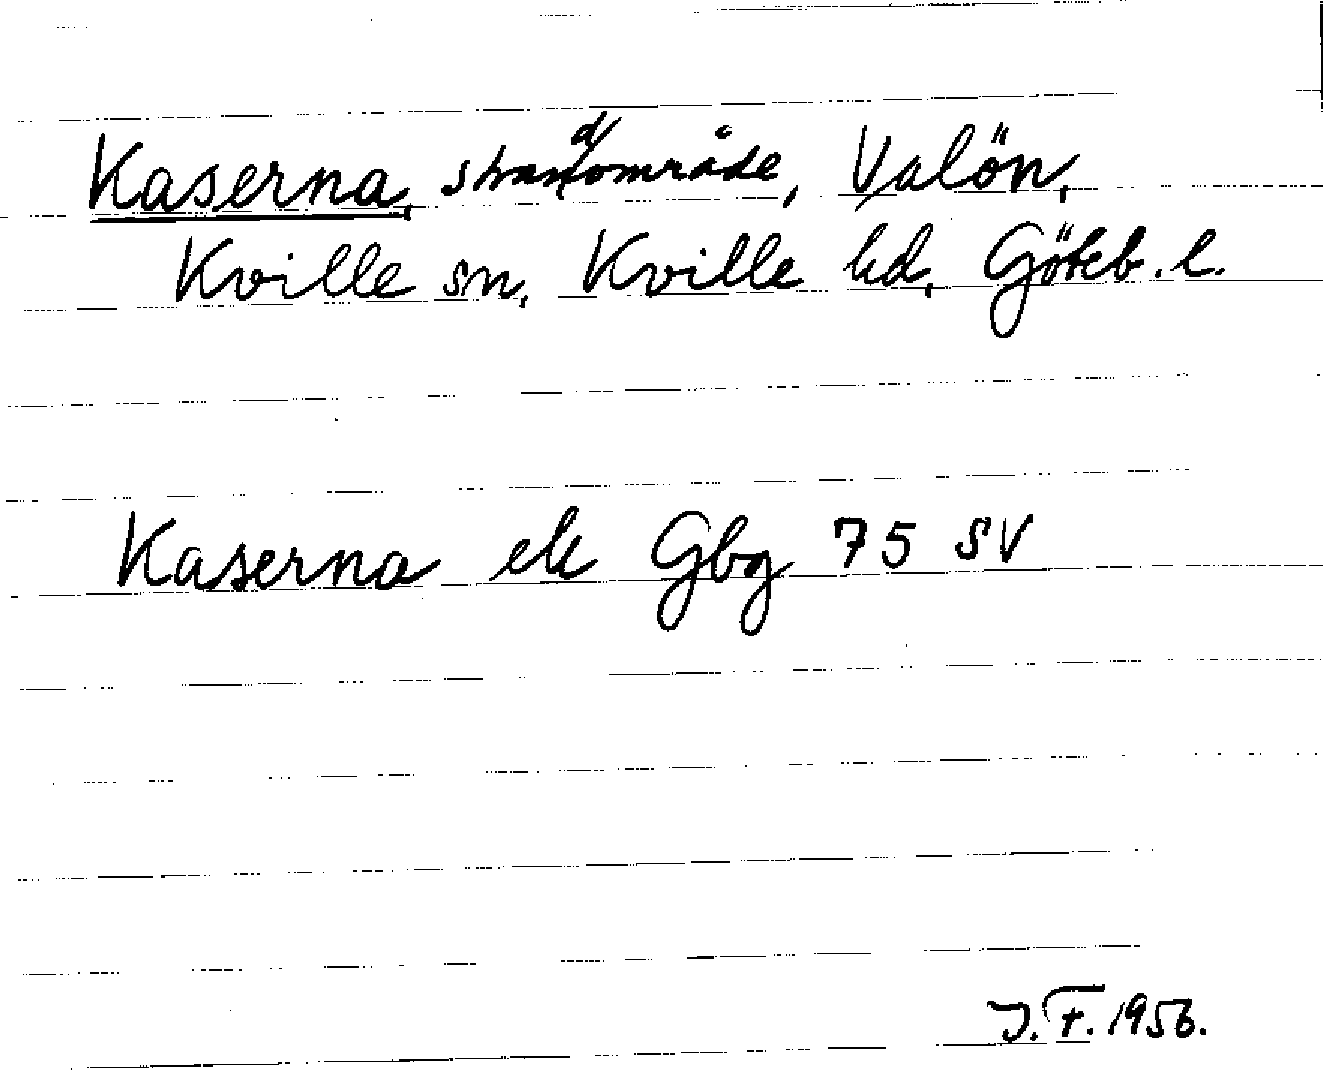 Kaserna, strandområde, Valön,
Kville sn, Kville hd, Göteb. l.
Kaserna ek Gbg 75 SV
J.F. 1956.